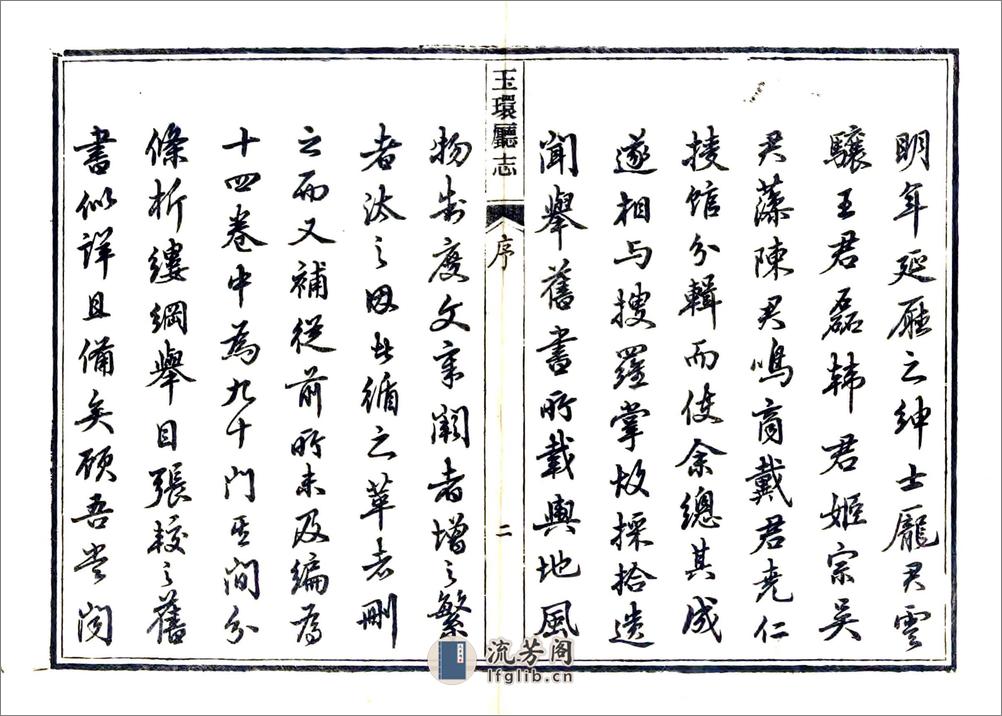 明年延廳之紳士龐君雲
驤王君磊韓君姬宗吳
君藻陳君鳴商戴君堯仁
館分輯而使余總其成
遂相与搜羅掌故採拾遺
聞舉舊書所載輿地風
玉環廳志
序
二
物制度文章闕者增之繁
者汰之因者循之革者刪
之而又補從前所未及編為
十四卷中為九十門其間分
條析縷綱舉目張較之舊
書似詳且備矣顧吾嘗閱
流芳阁
lfglib.cn